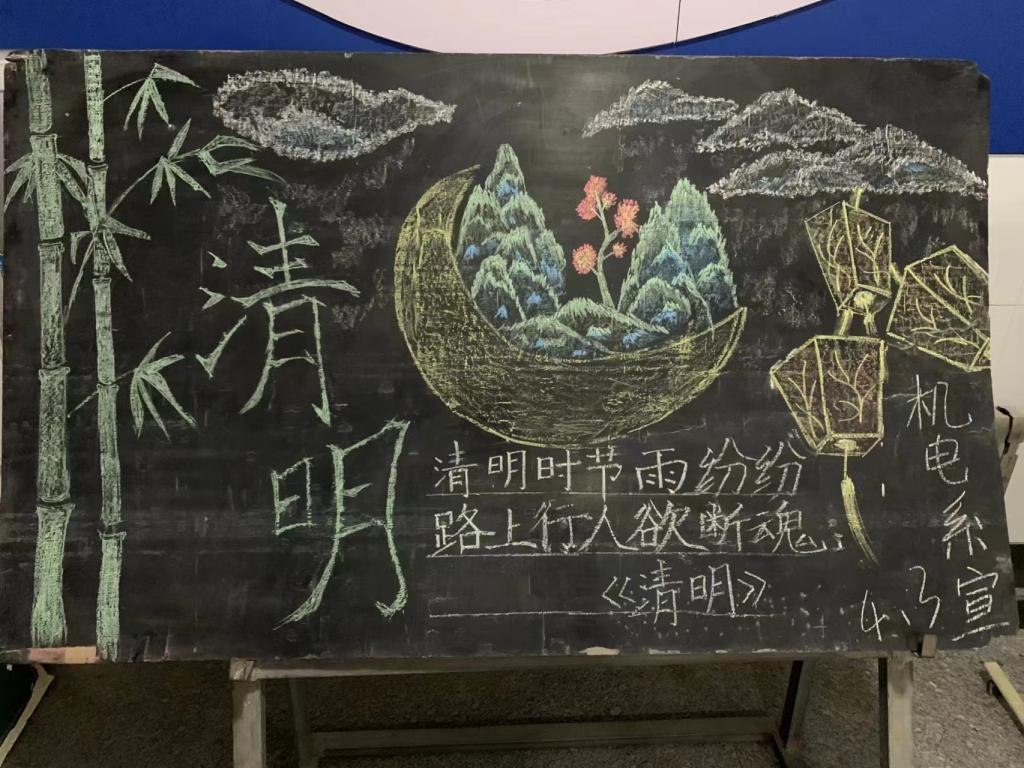 清明
清明时节雨纷纷
路上行人欲断魂;
《清明》
机电系宣
4.3